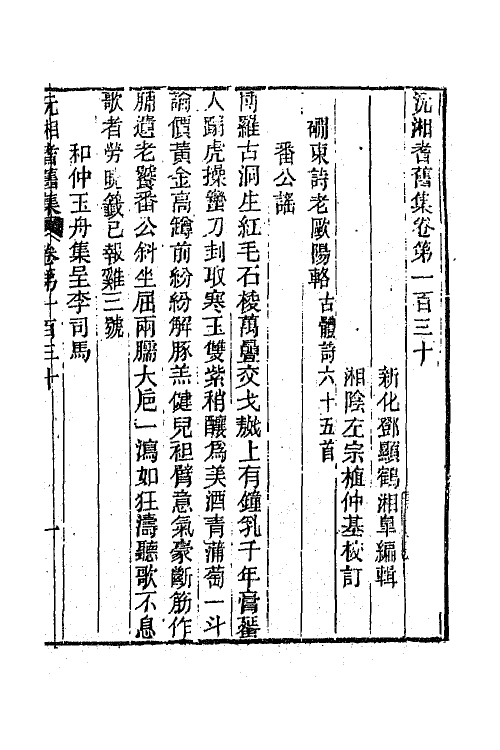 沅湘耆舊集卷第一百三十
新化鄧顯鶴湘皐編輯
湘陰左宗植仲基校訂
磵東詩老歐陽輅古體詩六十五首
番公謠
博羅古洞生紅毛石棱萬疊交戈㦸上有鐘乳千年膏蠻
人蹋虎操蠻刀刲取寒玉雙紫稍釀爲美酒青蒲萄一斗
論價黃金高蹲前紛紛解豚羔健兒袒臂意氣豪斷筋作
脯遺老饕番公斜坐屈兩臑大卮一瀉如狂濤聽歌不息
歌者勞曉籤已報雞三號
和仲玉舟集呈李司馬
沅湘耆舊集
卷第一百三十
一